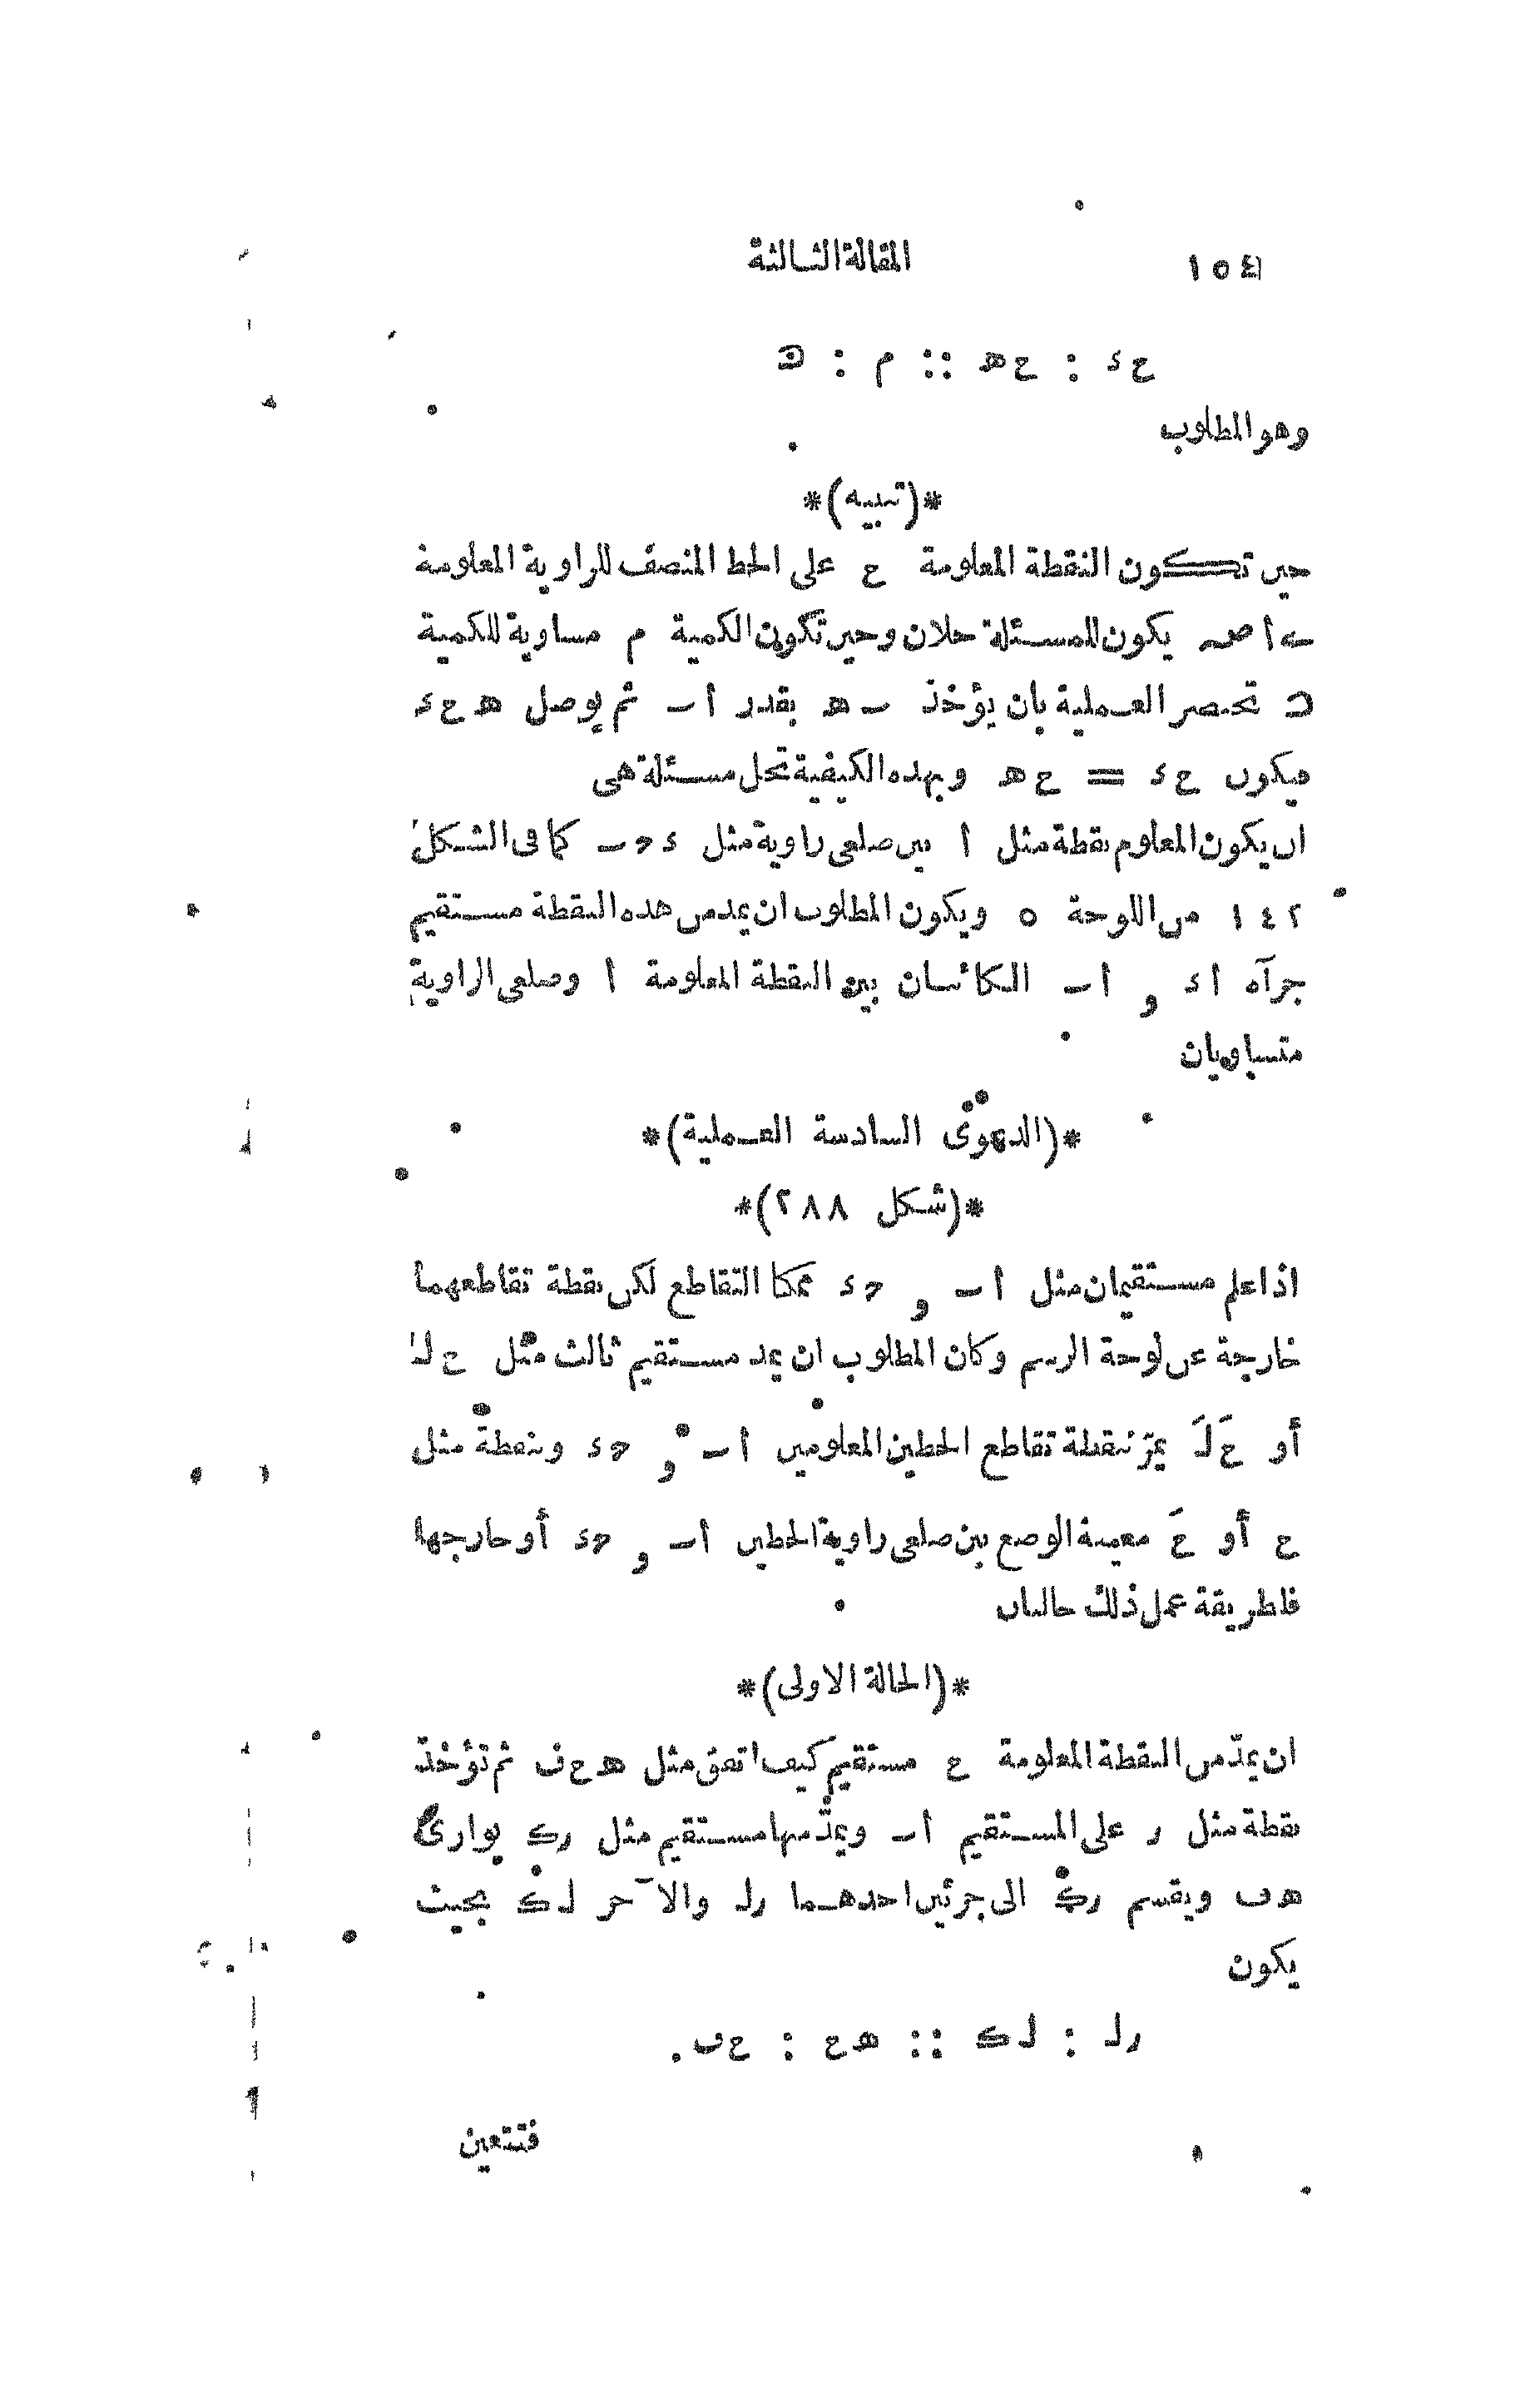 ١٥٤ المقالة الثالثة
ع د : ع ه :: م : ن
وهو المطلوب
*(تنبيه)*
حين تكون النقطة المعلومة ع على الخط المنصف للزاوية المعلومة
يكون للمسئلة حلان وحين تكون الكمية م مساوية للكمية
ن تنحصر العملية بان يؤخذ ب ه بقدر ا ب ثم يوصل ه ع د
فيكون ع د = ع ه وبهذه الكيفية تحل مسئلة هى
ان يكون المعلوم نقطة مثل ا بين ضلعى زاوية مثل د ح ب كما فى الشكل
١٤٢ من اللوحة ٥ ويكون المطلوب ان يمد من هذه النقطة مستقيم
جزآه ا د و ا ب الكائنان بين النقطة المعلومة ا وضلعى الزاوية
متساويان
*(الدعوى السادسة العملية)*
*(شكل ٢٨٨)*
اذا علم مستقيمان مثل ا ب و ح د ممكنا التقاطع لكن نقطة تقاطعهما
خارجة عن لوحة الرسم وكان المطلوب ان يمد مستقيم ثالث مثل ع ل
أو عَ لَ يمرّ بنقطة تقاطع الخطين المعلومين ا ب و ح د وبنقطة مثل
ع أو عَ معينة الوضع بين ضلعى زاوية الخطين ا ب و ح د أو خارجها
فلطريقة عمل ذلك حالتان
*(الحالة الاولى)*
ان يمدّ من النقطة المعلومة ع مستقيم كيف اتفق مثل ه ع ف ثم تؤخذ
نقطة مثل ر على المستقيم ا ب ويمدّ منها مستقيم مثل رك يوازى
ه ف ويقسم رك الى جزئين احدهما رل والآخر ل ك بحيث
يكون
رل : ل ك :: ه ع : ع ف.
فتتعين